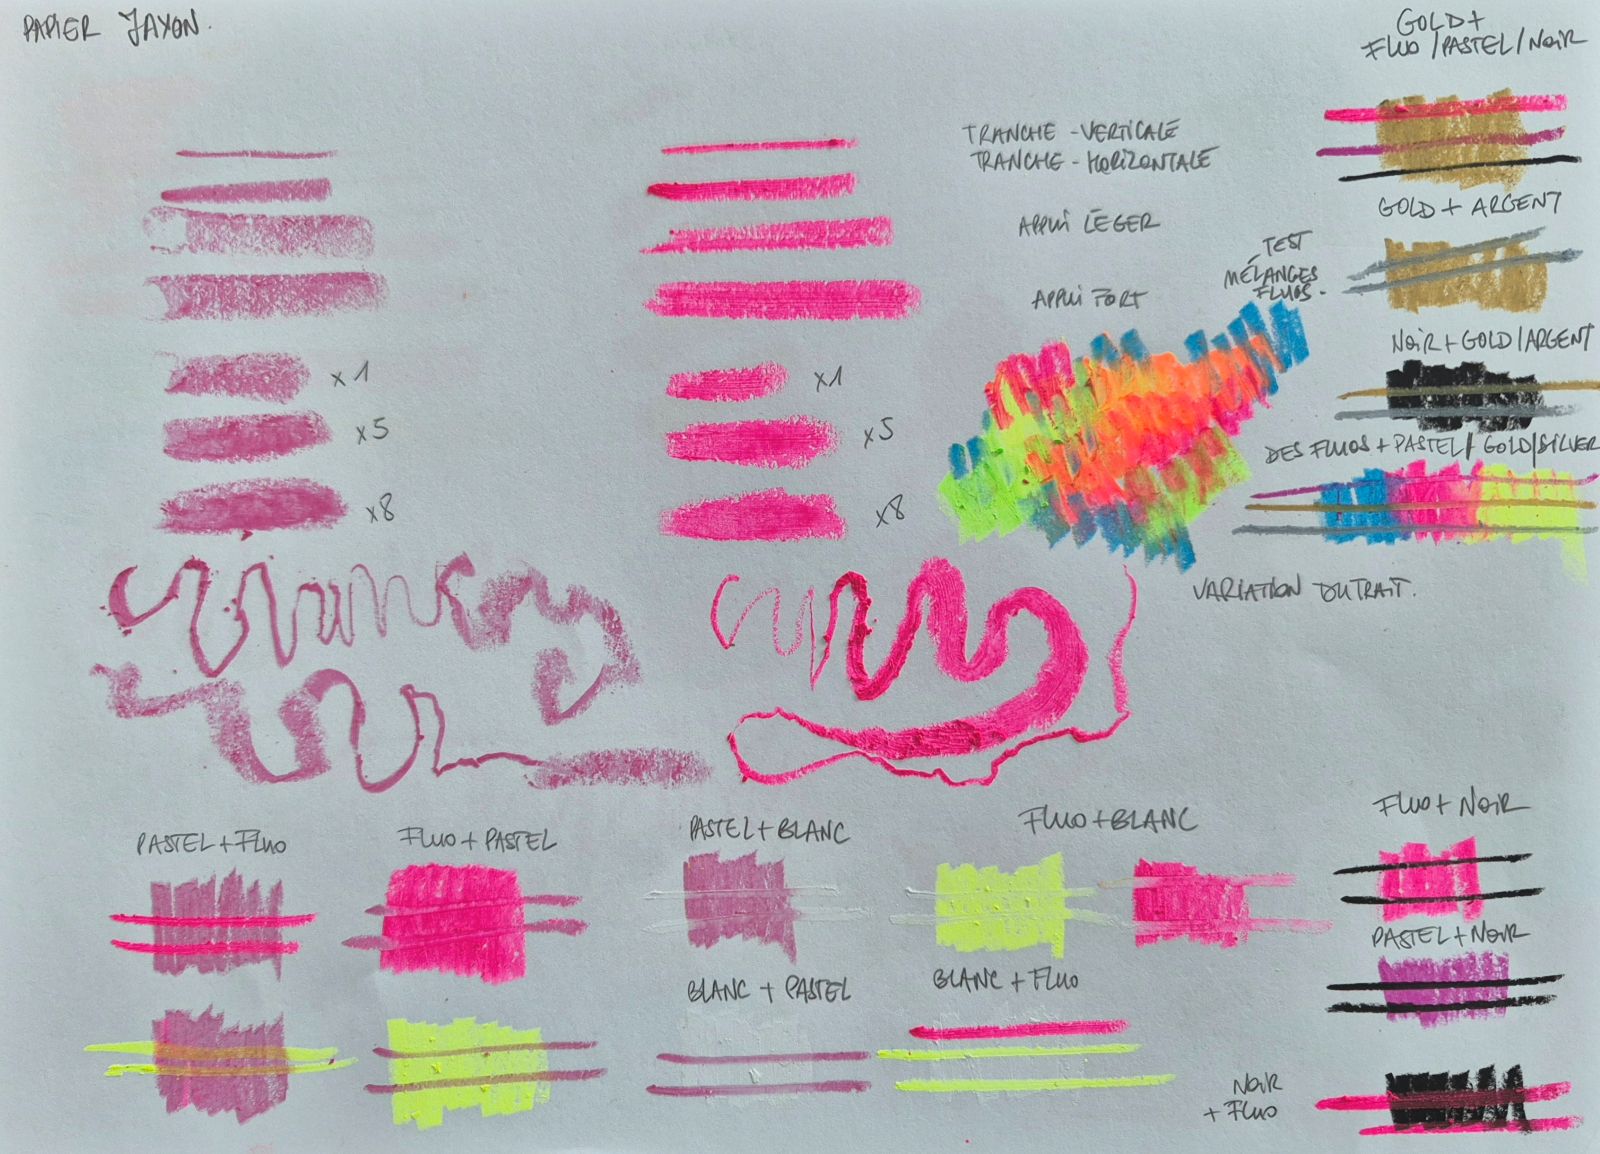 PAPIER JAXON.
GOLD +
FLUO / PASTEL / NOIR
TRANCHE - VERTICALE
TRANCHE - HORIZONTALE
GOLD + ARGENT
APPUI LÉGER
TEST
MÉLANGES
FLUOS.
APPUI FORT
NOIR + GOLD / ARGENT
x1
x1
x5
x5
DES FLUOS + PASTEL / GOLD/SILVER
x8
x8
VARIATION DU TRAIT.
PASTEL + FLUO
FLUO + PASTEL
PASTEL + BLANC
FLUO + BLANC
FLUO + NOIR
PASTEL + NOIR
BLANC + PASTEL
BLANC + FLUO
NOIR
+ FLUO